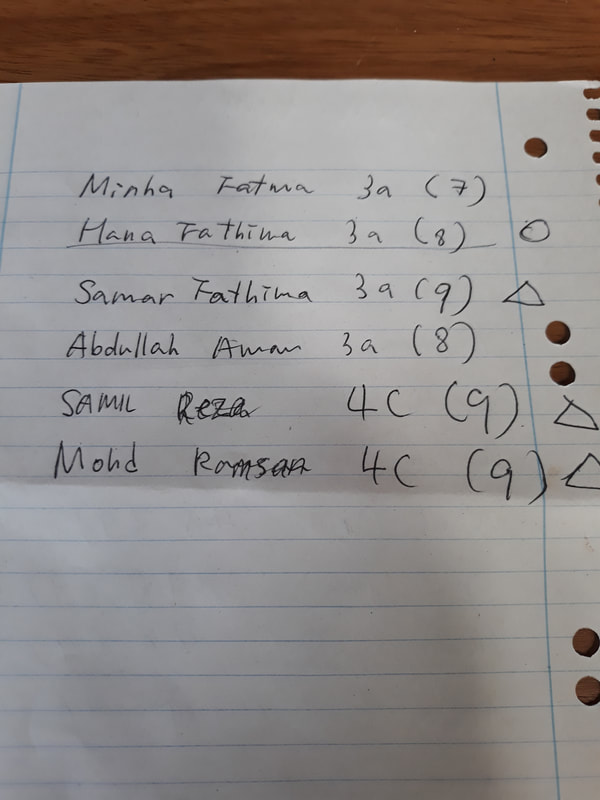 Minha Fatma 3a (7)
Hana Fathima 3a (8) ○
Samar Fathima 3a (9) △
Abdullah Aman 3a (8)
SAMIL Reza 4C (9) △
Mohd Ramsan 4C (9) △